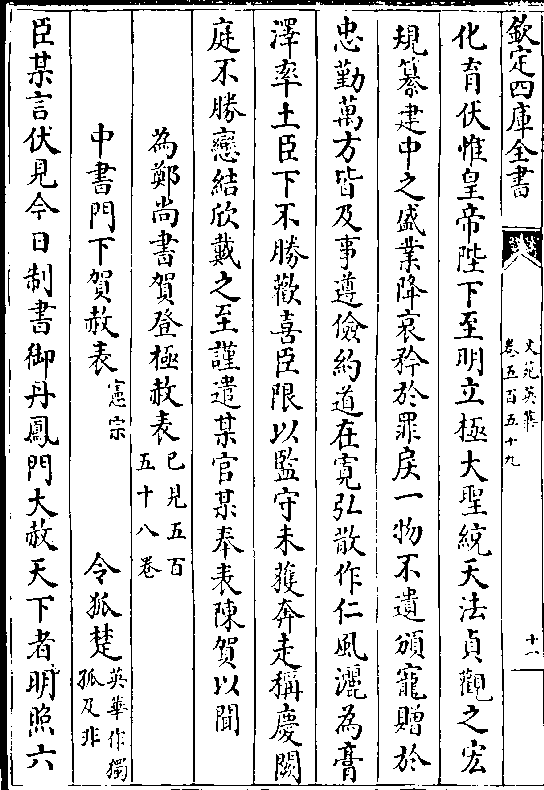 欽定四庫全書
文苑英華
卷五百五十九
十一
化育伏惟皇帝陛下至明立極大聖統天法貞觀之宏
規纂建中之盛業降哀矜於罪戾一物不遺頒寵贈於
忠勤萬方皆及事遵儉約道在寛弘散作仁風灑為膏
澤率土臣下不勝歡喜臣限以監守未獲奔走稱慶闕
庭不勝戀結欣戴之至謹遣某官某奉表陳賀以聞
為鄭尚書賀登極赦表已見五百
五十八卷
中書門下賀赦表憲宗 令狐楚英華作獨
孤及非
臣某言伏見今日制書御丹鳳門大赦天下者明照六